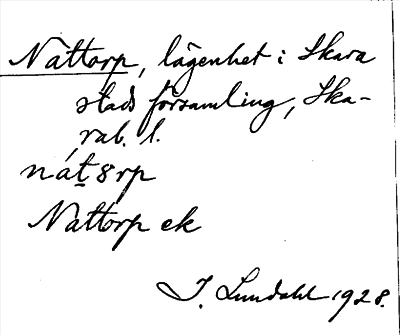 Nättorp, lägenhet i Skara
stads församling, Ska-
rab. l.
nát8rp
Nattorp ek
I. Lundahl 1928.